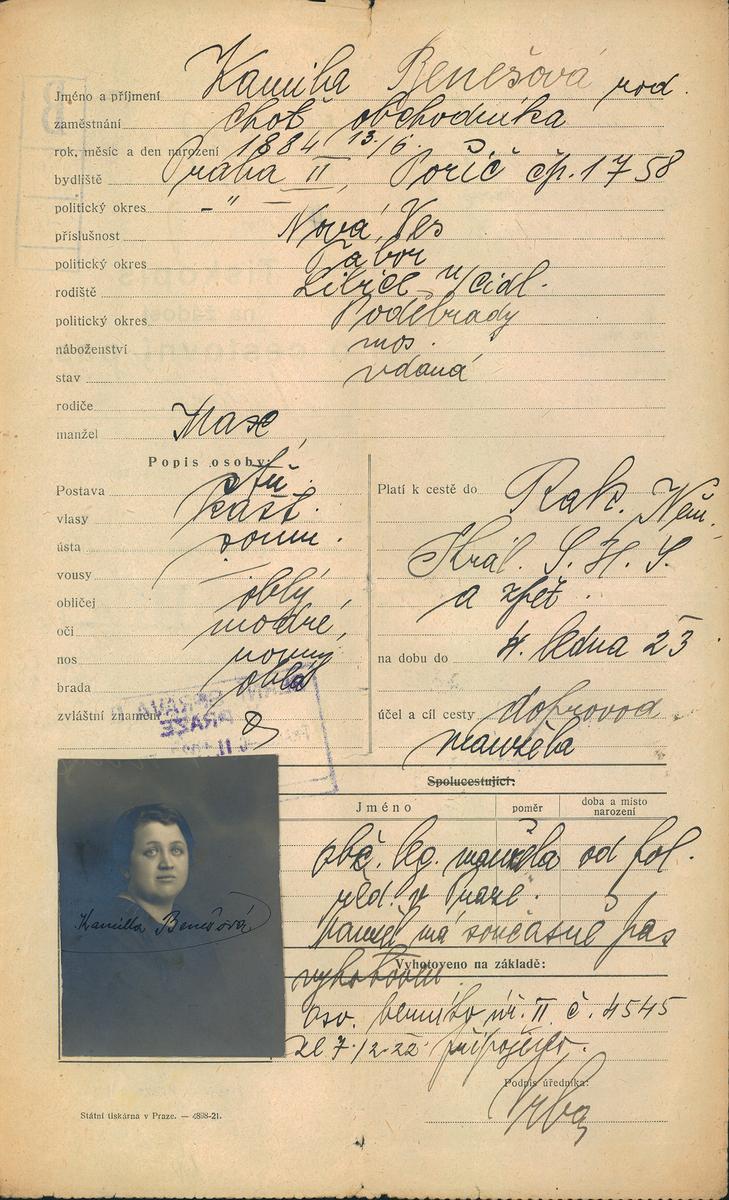 Jméno a příjmení Kamila Benešová rod.
zaměstnání choť obchodníka
rok, měsíc a den narození 1884 13/6.
bydliště Praha II, Poříč čp. 1758
politický okres -"-
příslušnost Nová Ves
politický okres Tábor
rodiště Libice n/Cidl.
politický okres Poděbrady
náboženství mos.
stav vdaná
rodiče
manžel Max
Popis osoby:
Postava stř.
vlasy kašt.
ústa soum.
vousy —
obličej oblý
oči modré,
nos rovný
brada oblá
zvláštní znamení
Platí k cestě do Rak. Něm.
Král. S. H. S.
a zpět.
na dobu do 4. ledna 23.
účel a cíl cesty doprovod
manžela
Spolucestující:
Jméno poměr doba a místo narození
obč. leg. manžela od pol.
řed. v Praze.
Manžel má současně pas
Vyhotoveno na základě:
vyhotoven
osv. berního úř. II č. 4545
ze 7./2.22 připojeno.
Podpis úředníka:
Vrba
Kamilla Benešová
Státní tiskárna v Praze. — 4898-21.